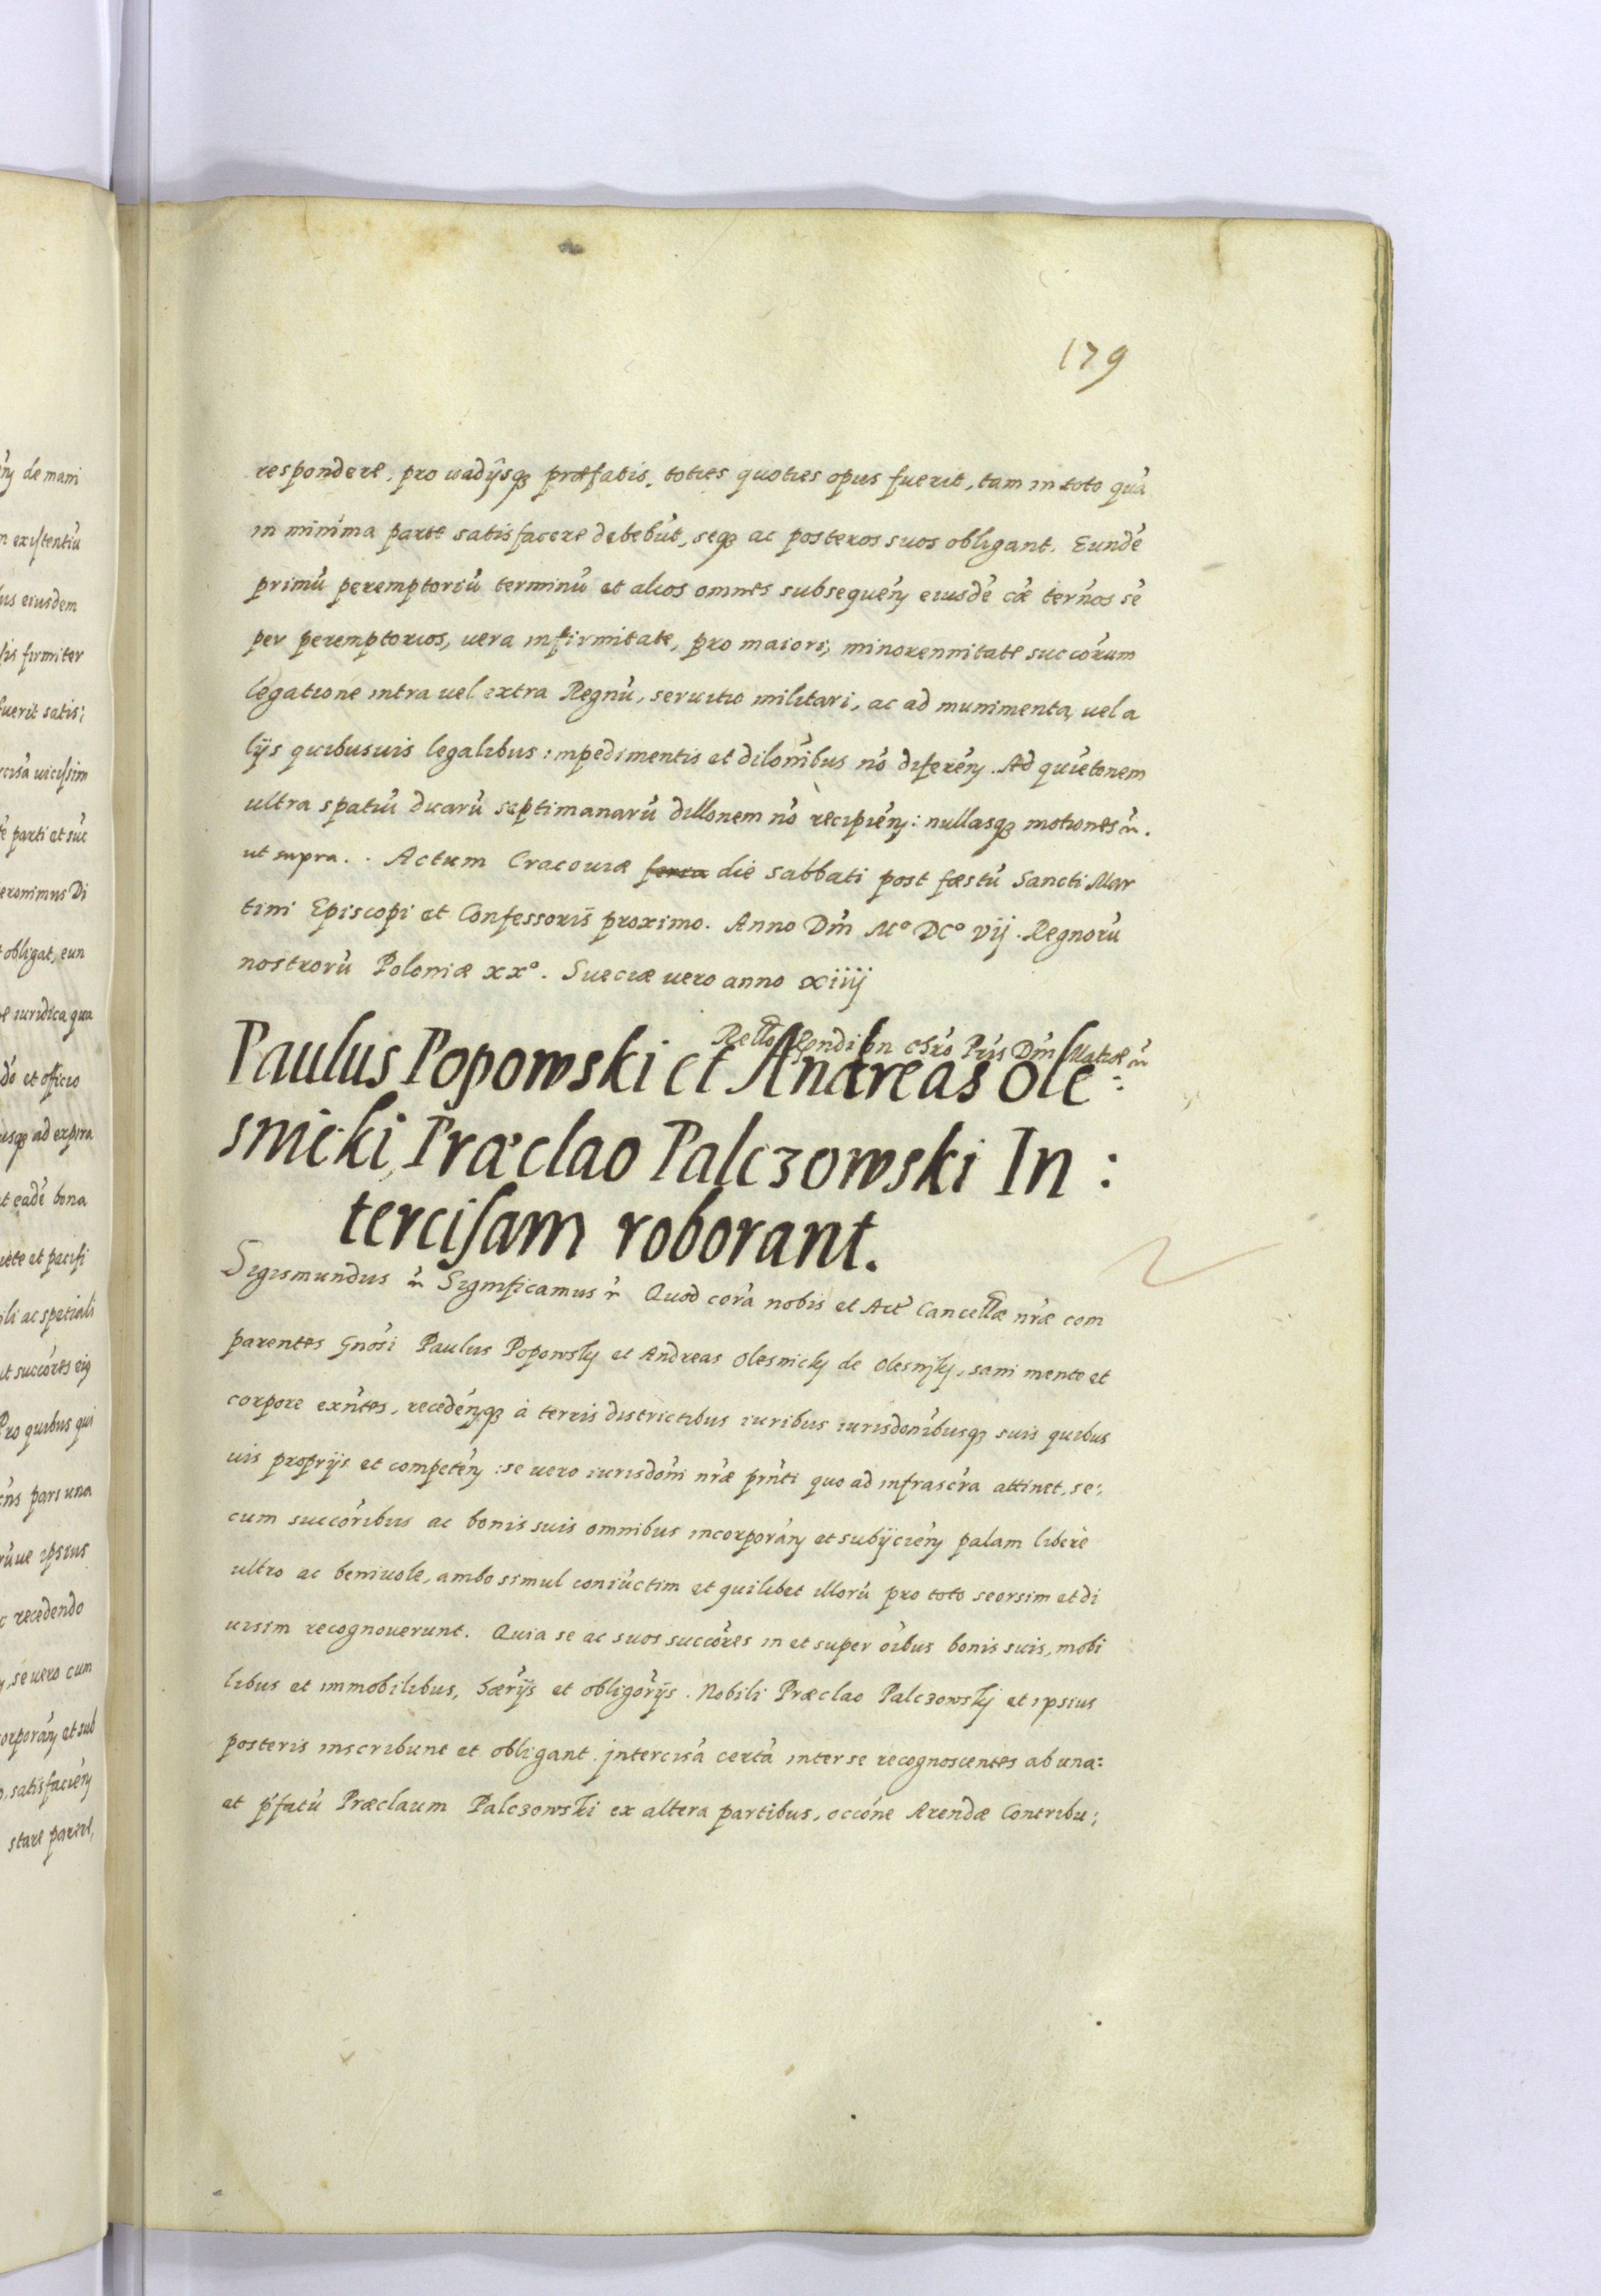 179
respondere, pro uadijsq₃ præfatis, toties quoties opus fuerit, tam in toto quā
in minima parte satisfacere debebūt, seq₃ ac posteros suos obligant. Eundē
primū peremptoriū terminū et alios omnes subsequen̄ eiusdē cāe ter̄nos sē
per peremptorios, uera infirmitate, pro maiori, minorennitate succōrum
legatione intra uel extra Regnū, seruitio militari, ac ad munimenta, uel a
lijs quibusuis legalibus impedimentis et dilōnibus nō diferen̄. Ad quietōnem
ultra spatiū duarū septimanarū dillonem nō recipien̄: nullasq₃ motiones
ut supra. Actum Cracouiæ feria die Sabbati post fæstū Sancti Mar
tini Episcopi et Confessoris proximo. Anno Dm̄ Mº DCº vij. Regnorū
nostrorū Poloniæ xxº. Sueciæ uero anno xiiij
Paulus Popowski et Andreas Ole:
snicki, Præclao Palczowski In:
tercisam roborant.
Sigismundus Significamus Quod corā nobis et Act̄ Cancellæ nr̄æ com
parentes Gnōsi Paulus Popowsky et Andreas Olesnicky de Olesnijky, sani mente et
corpore exn̄tes, recedēn̄q₃ à terris districtibus iuribus iurisdōnibusq₃ suis quibus
uis proprijs et competen̄: se uero iurisdōni nr̄æ prn̄ti quo ad infrascr̄a attinet, se:,
cum succōribus ac bonis suis omnibus incorporan̄ et subijcien̄ palam liberè
ultro ac beniuole, ambo simul coniūctim et quilibet illorū pro toto seorsim et di
uisim recognouerunt. Quia se ac suos succōres in et super ōibus bonis suis, mobi
libus et immobilibus, hær̄ijs et obligōrijs. Nobili Præclao Palczowsky et ipsius
posteris inscribunt et obligant. intercisā certā inter se recognoscentes ab una:
et p̄fatū Præclaum Palczowski ex altera partibus, occōne Arendæ Contribu:,